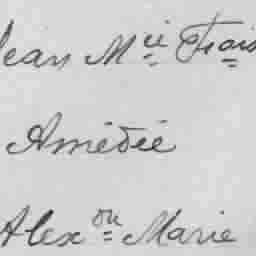 Jean Mcie Frois
Amédée
Alex ou Marie